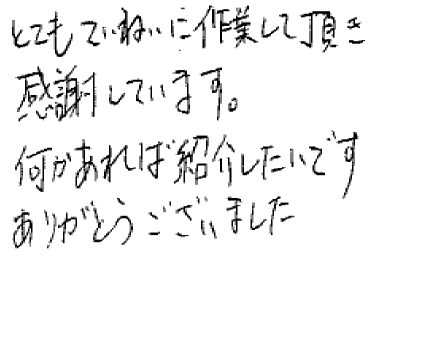 とてもていねいに作業して頂き
感謝しています。
何かあれば紹介したいです
ありがとうございました